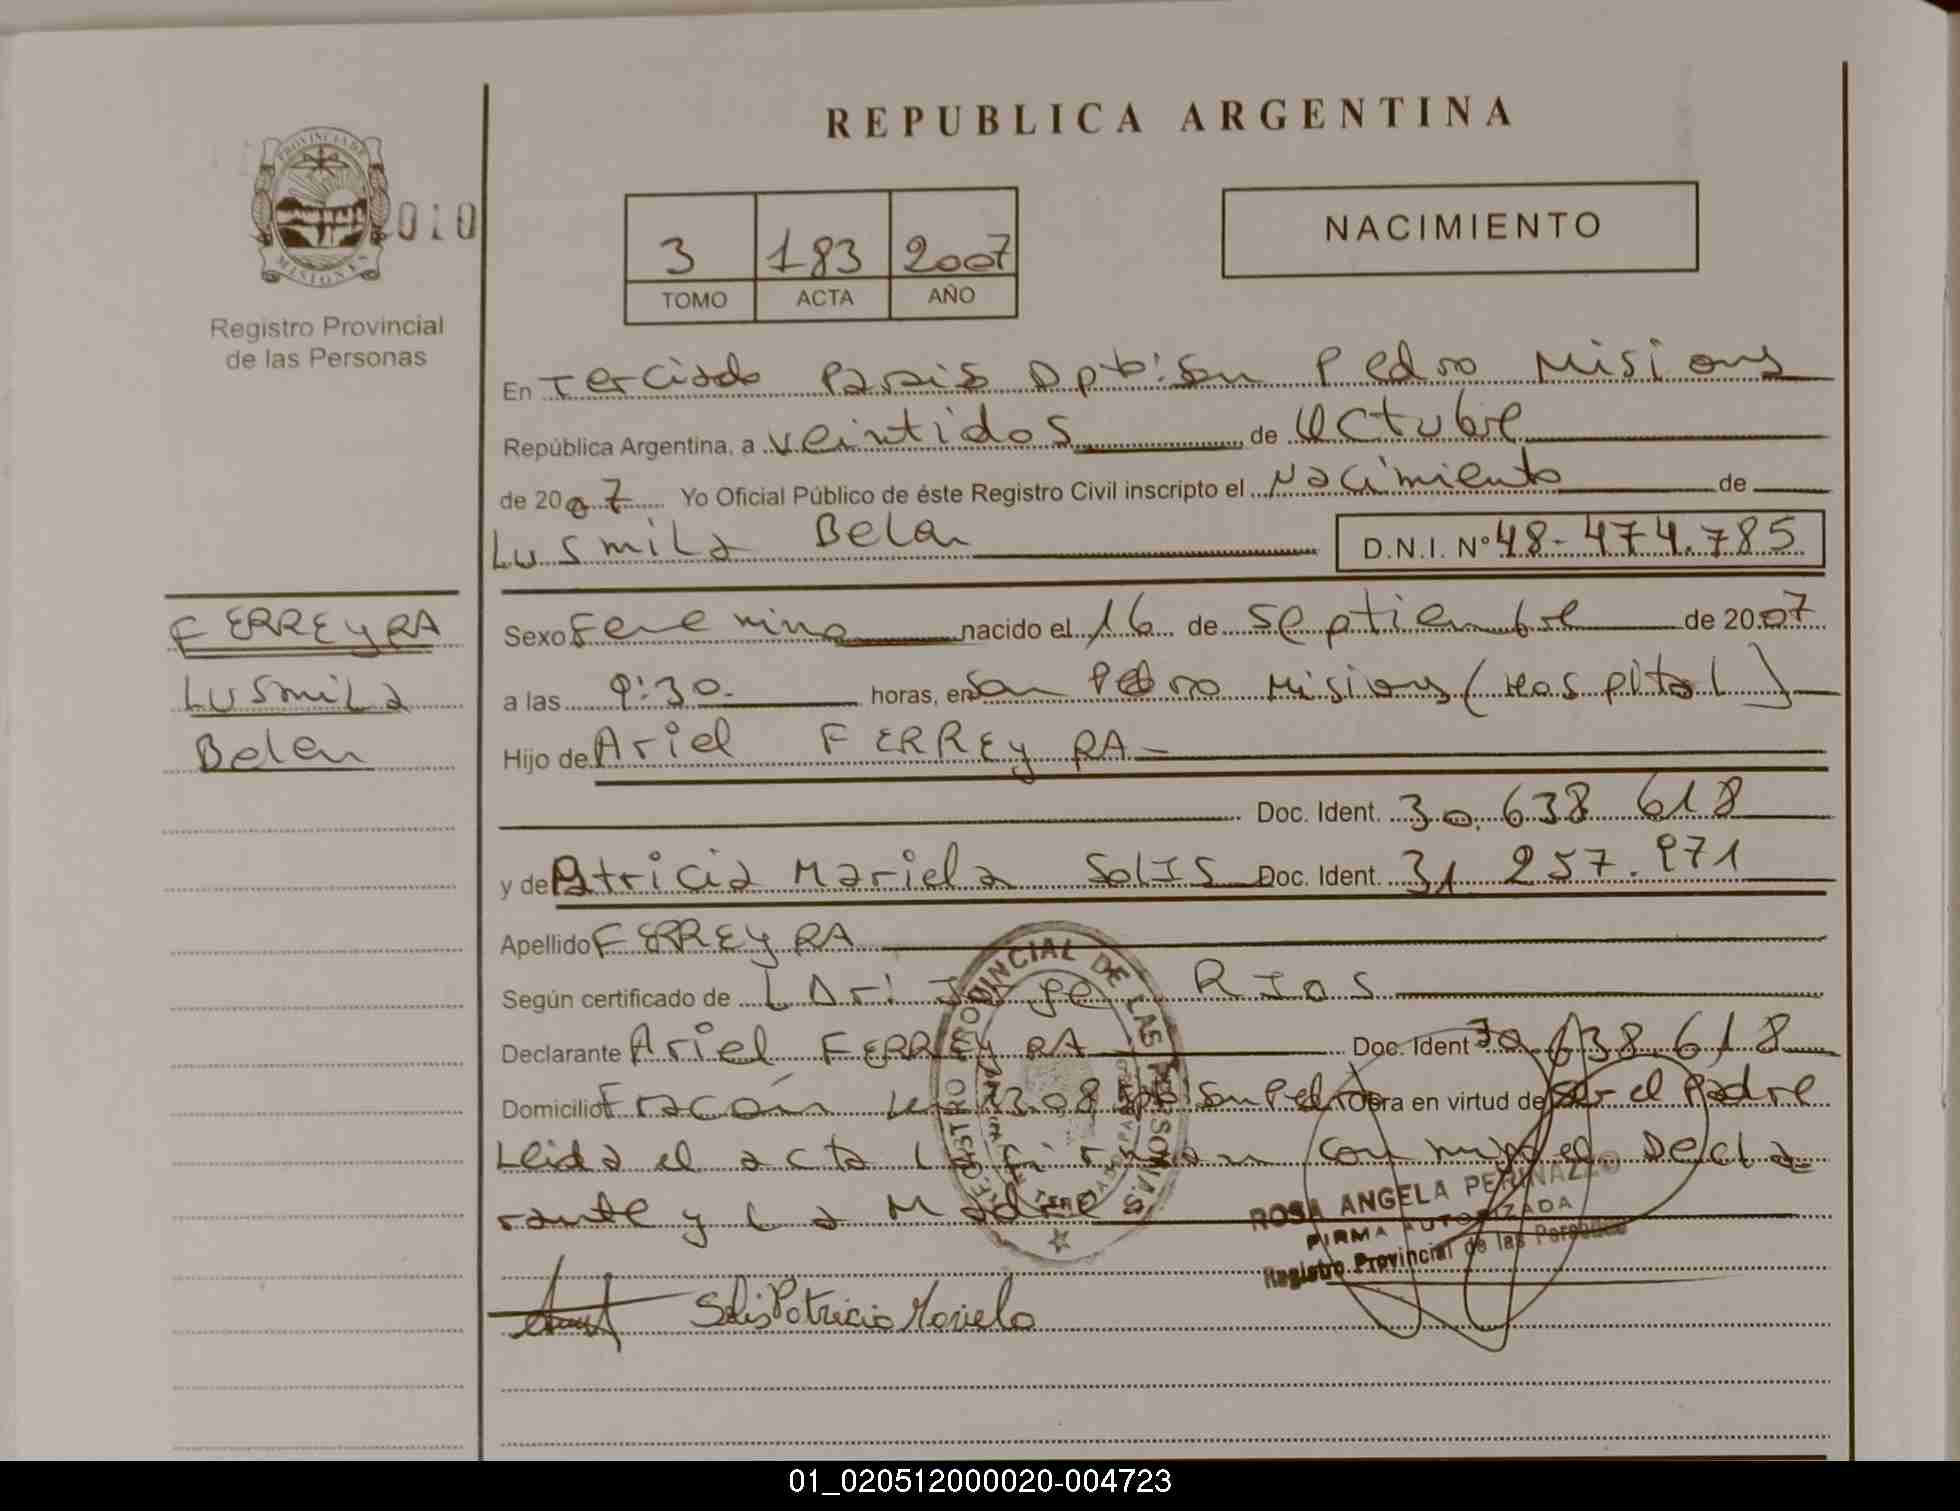 REPUBLICA ARGENTINA
PROVINCIA DE
MISIONES
010
Registro Provincial
de las Personas
3 183 2007
TOMO ACTA AÑO
NACIMIENTO
En Terciado Paraiso Dpto: San Pedro Misiones
República Argentina, a veintidos de Octubre
de 2007 Yo Oficial Público de éste Registro Civil inscripto el Nacimiento de
Lusmila Belen D.N.I. Nº 48-474.785
FERREYRA
Lusmila
Belen
Sexo Femenino nacido el 16 de Septiembre de 2007
a las 9:30. horas, en San Pedro Misiones (Hospital)
Hijo de Ariel FERREYRA
Doc. Ident. 30.638 618
y de Patricia Mariela SOLIS Doc. Ident. 31 257.971
Apellido FERREYRA
Según certificado de RIOS
Declarante Ariel FERREYRA Doc. Ident 30 638 618
Domicilio Fracán San Pedro Obra en virtud de ser el Padre
Leida el acta la firman conmigo el Decla
rante y la Madre
REGISTRO PROVINCIAL DE LAS PERSONAS
ROSA ANGELA PERINAZZO
FIRMA AUTORIZADA
Registro Provincial de las Personas
Solis Patricia Mariela
01_020512000020-004723